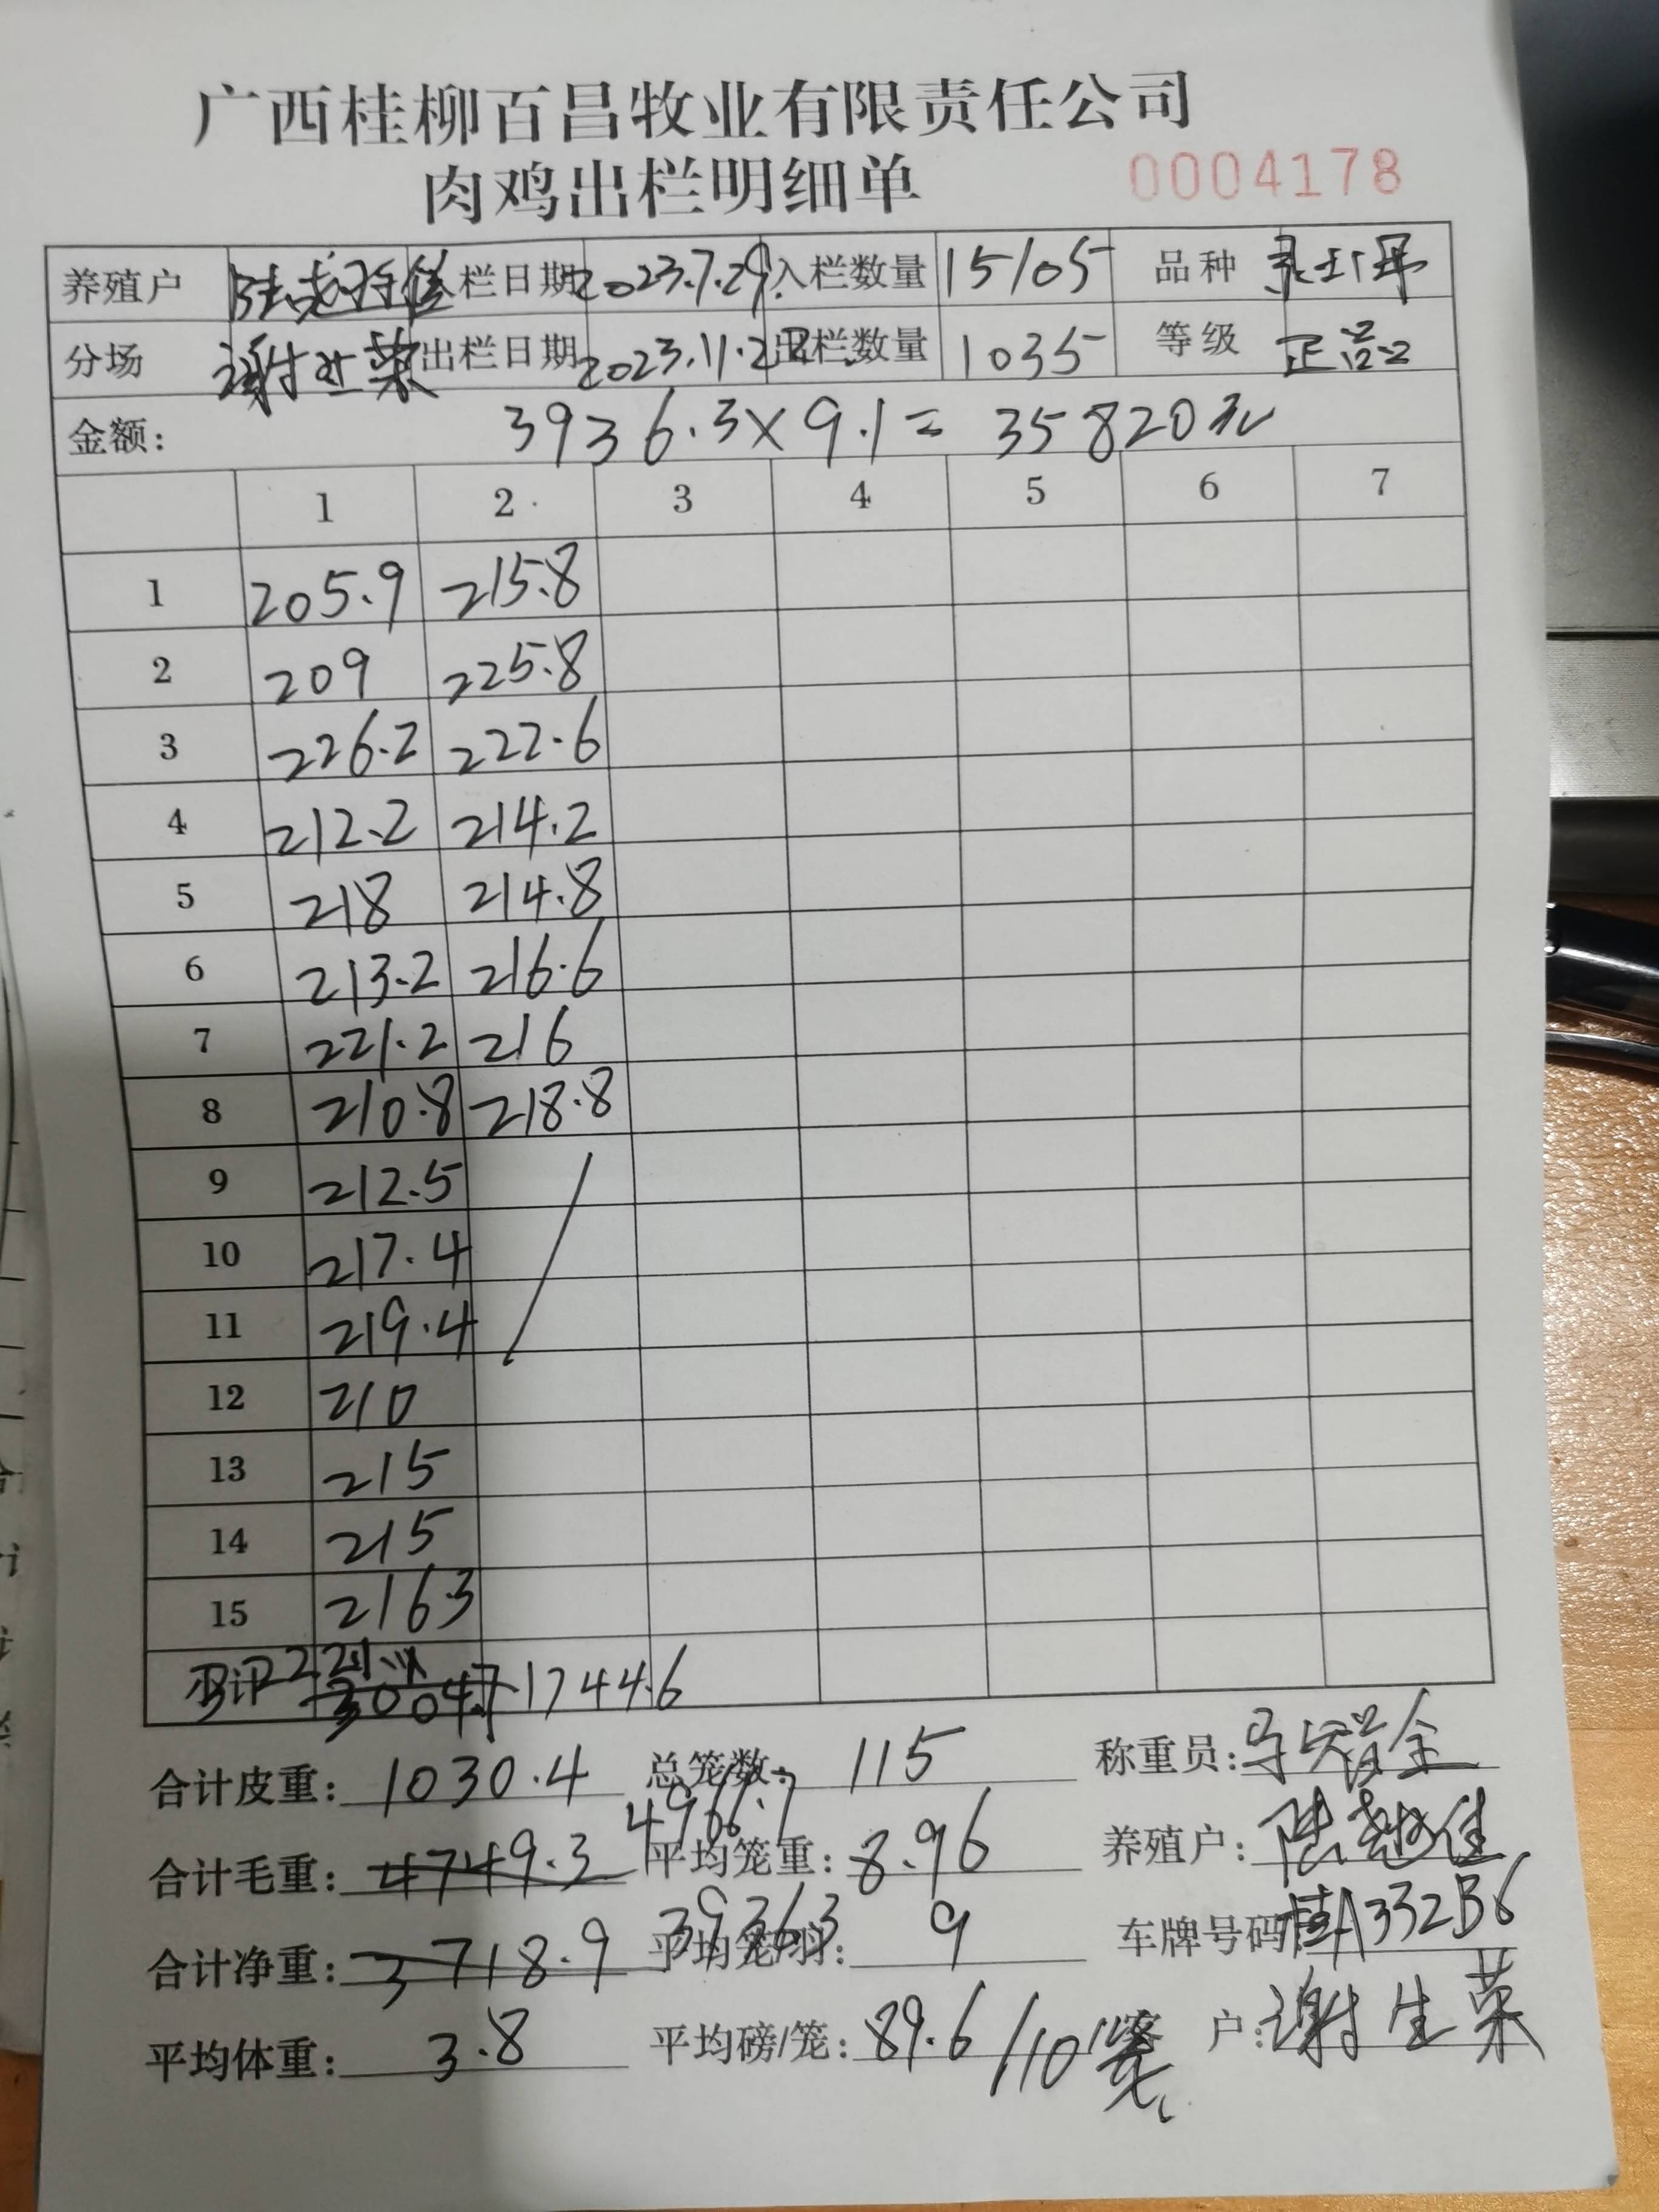 广西桂柳百昌牧业有限责任公司
肉鸡出栏明细单 0004178
养殖户 入栏日期 2023.7.29 入栏数量 15105 品种
分场 谢生荣 出栏日期 2023.11.22 出栏数量 1035 等级 正品
金额: 3936.3×9.1=35820元
1 2 3 4 5 6 7
1 205.9 215.8
2 209 225.8
3 226.2 222.6
4 212.2 214.2
5 218 214.8
6 213.2 216.6
7 221.2 216
8 210.8 218.8
9 212.5
10 217.4
11 219.4
12 210
13 215
14 215
15 216.3
1744.6
合计皮重: 1030.4 总笼数: 115 称重员:
合计毛重: 4749.3 4966.7 平均笼重: 8.96 养殖户:
合计净重: 3718.9 3936.3 平均笼羽: 9 车牌号码 桂A332B6
平均体重: 3.8 平均磅/笼: 89.6/10笼 户: 谢生荣